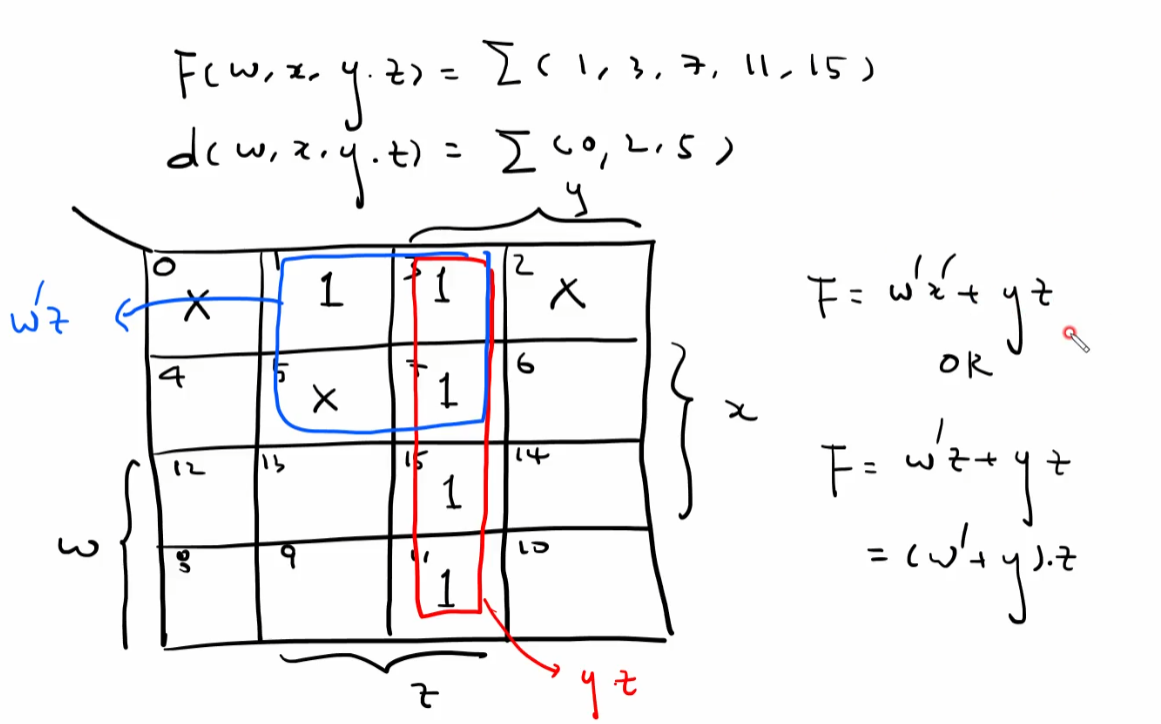 F(w, x, y, z) = Σ(1, 3, 7, 11, 15)
d(w, x, y, z) = Σ(0, 2, 5)
y
0 X 1 1 3 1 2 X
w'z
4 5 X 7 1 6
x
12 13 15 1 14
w
8 9 11 1 10
z
yz
F = w'x' + yz
OR
F = w'z + yz
= (w' + y).z